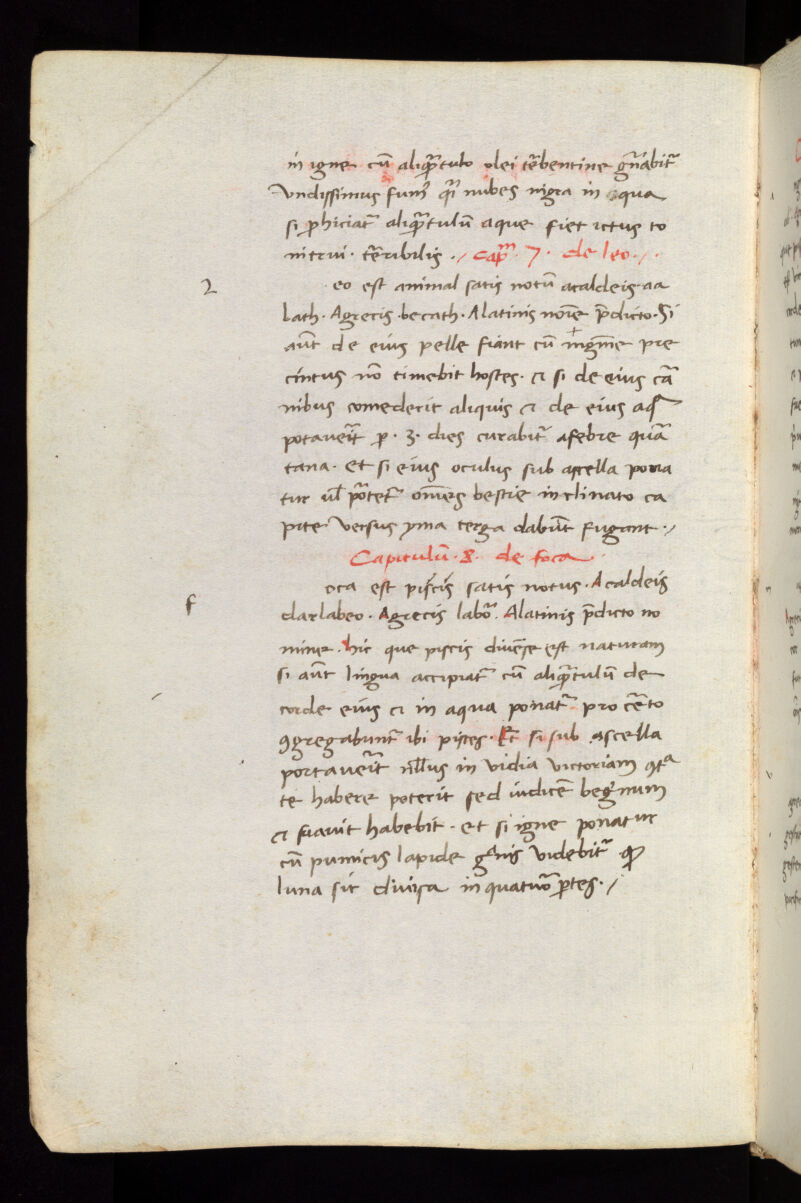 in igne cū aliq̄tulo olei t̄bentine gn̄abit᷑
Vndissimus fum᷒ q̄i nubes nigra in aqua
si p̱hiciat᷑ aliq̄tulū aque fiet ictus to
nitrui · t̄ribilis ./ Cap̄m · 7 · de leo ./.
2
eo est animal satis notū acaldeis aa
lath · Agrecis · becath · Alatinis noīe p̄dicto · Si
aūt de eius pelle fiant cū
pre
cintus nō timebit hostes · et si de eius cā
nibus comederit aliquis et de eius
potauerīt p̱ · 3 · dies curabit᷑ afebre quā
tana · Et si eius oculus sub ascella pona
tur ul̄
bestie inclinato ca
pite Versus yma terga dabūt fugant ./
Capitulū · 8 · de foca ·
f
oca est piscis satis notus · Acaldeis
darlabeo · Agrecis labōr · Alatinis p̄dicto no
mine · hic que piscis diuērse est naturam
si aūt lingua accipiat᷑ cū aliq̄tulū de
corde eius et in aqua ponat᷑ pro cērto
ꝯgregabunt᷑ ibi pisces · Et si sub ascella
portauerīt nl̄lus in vidia victoriam
te habere poterit sed iudicē begnīnum
et
habebit · et si igne ponatur
cū pumicis lapide
videbit᷑ ꝙ
luna sit diuisa in quatuōr p̱tes ./